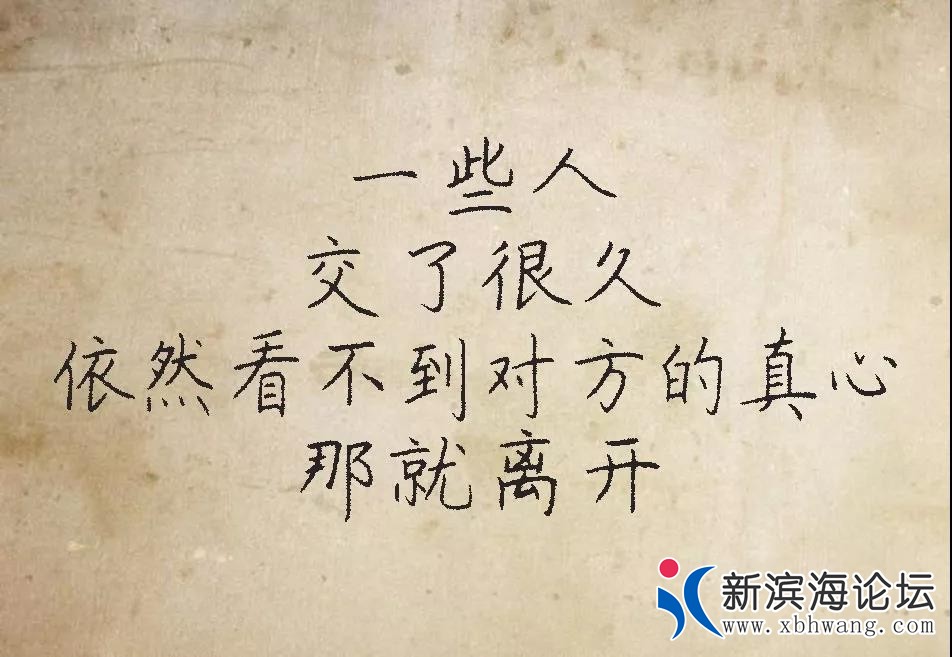 一些人
交了很久
依然看不到对方的真心
那就离开
新滨海论坛
www.xbhwang.com